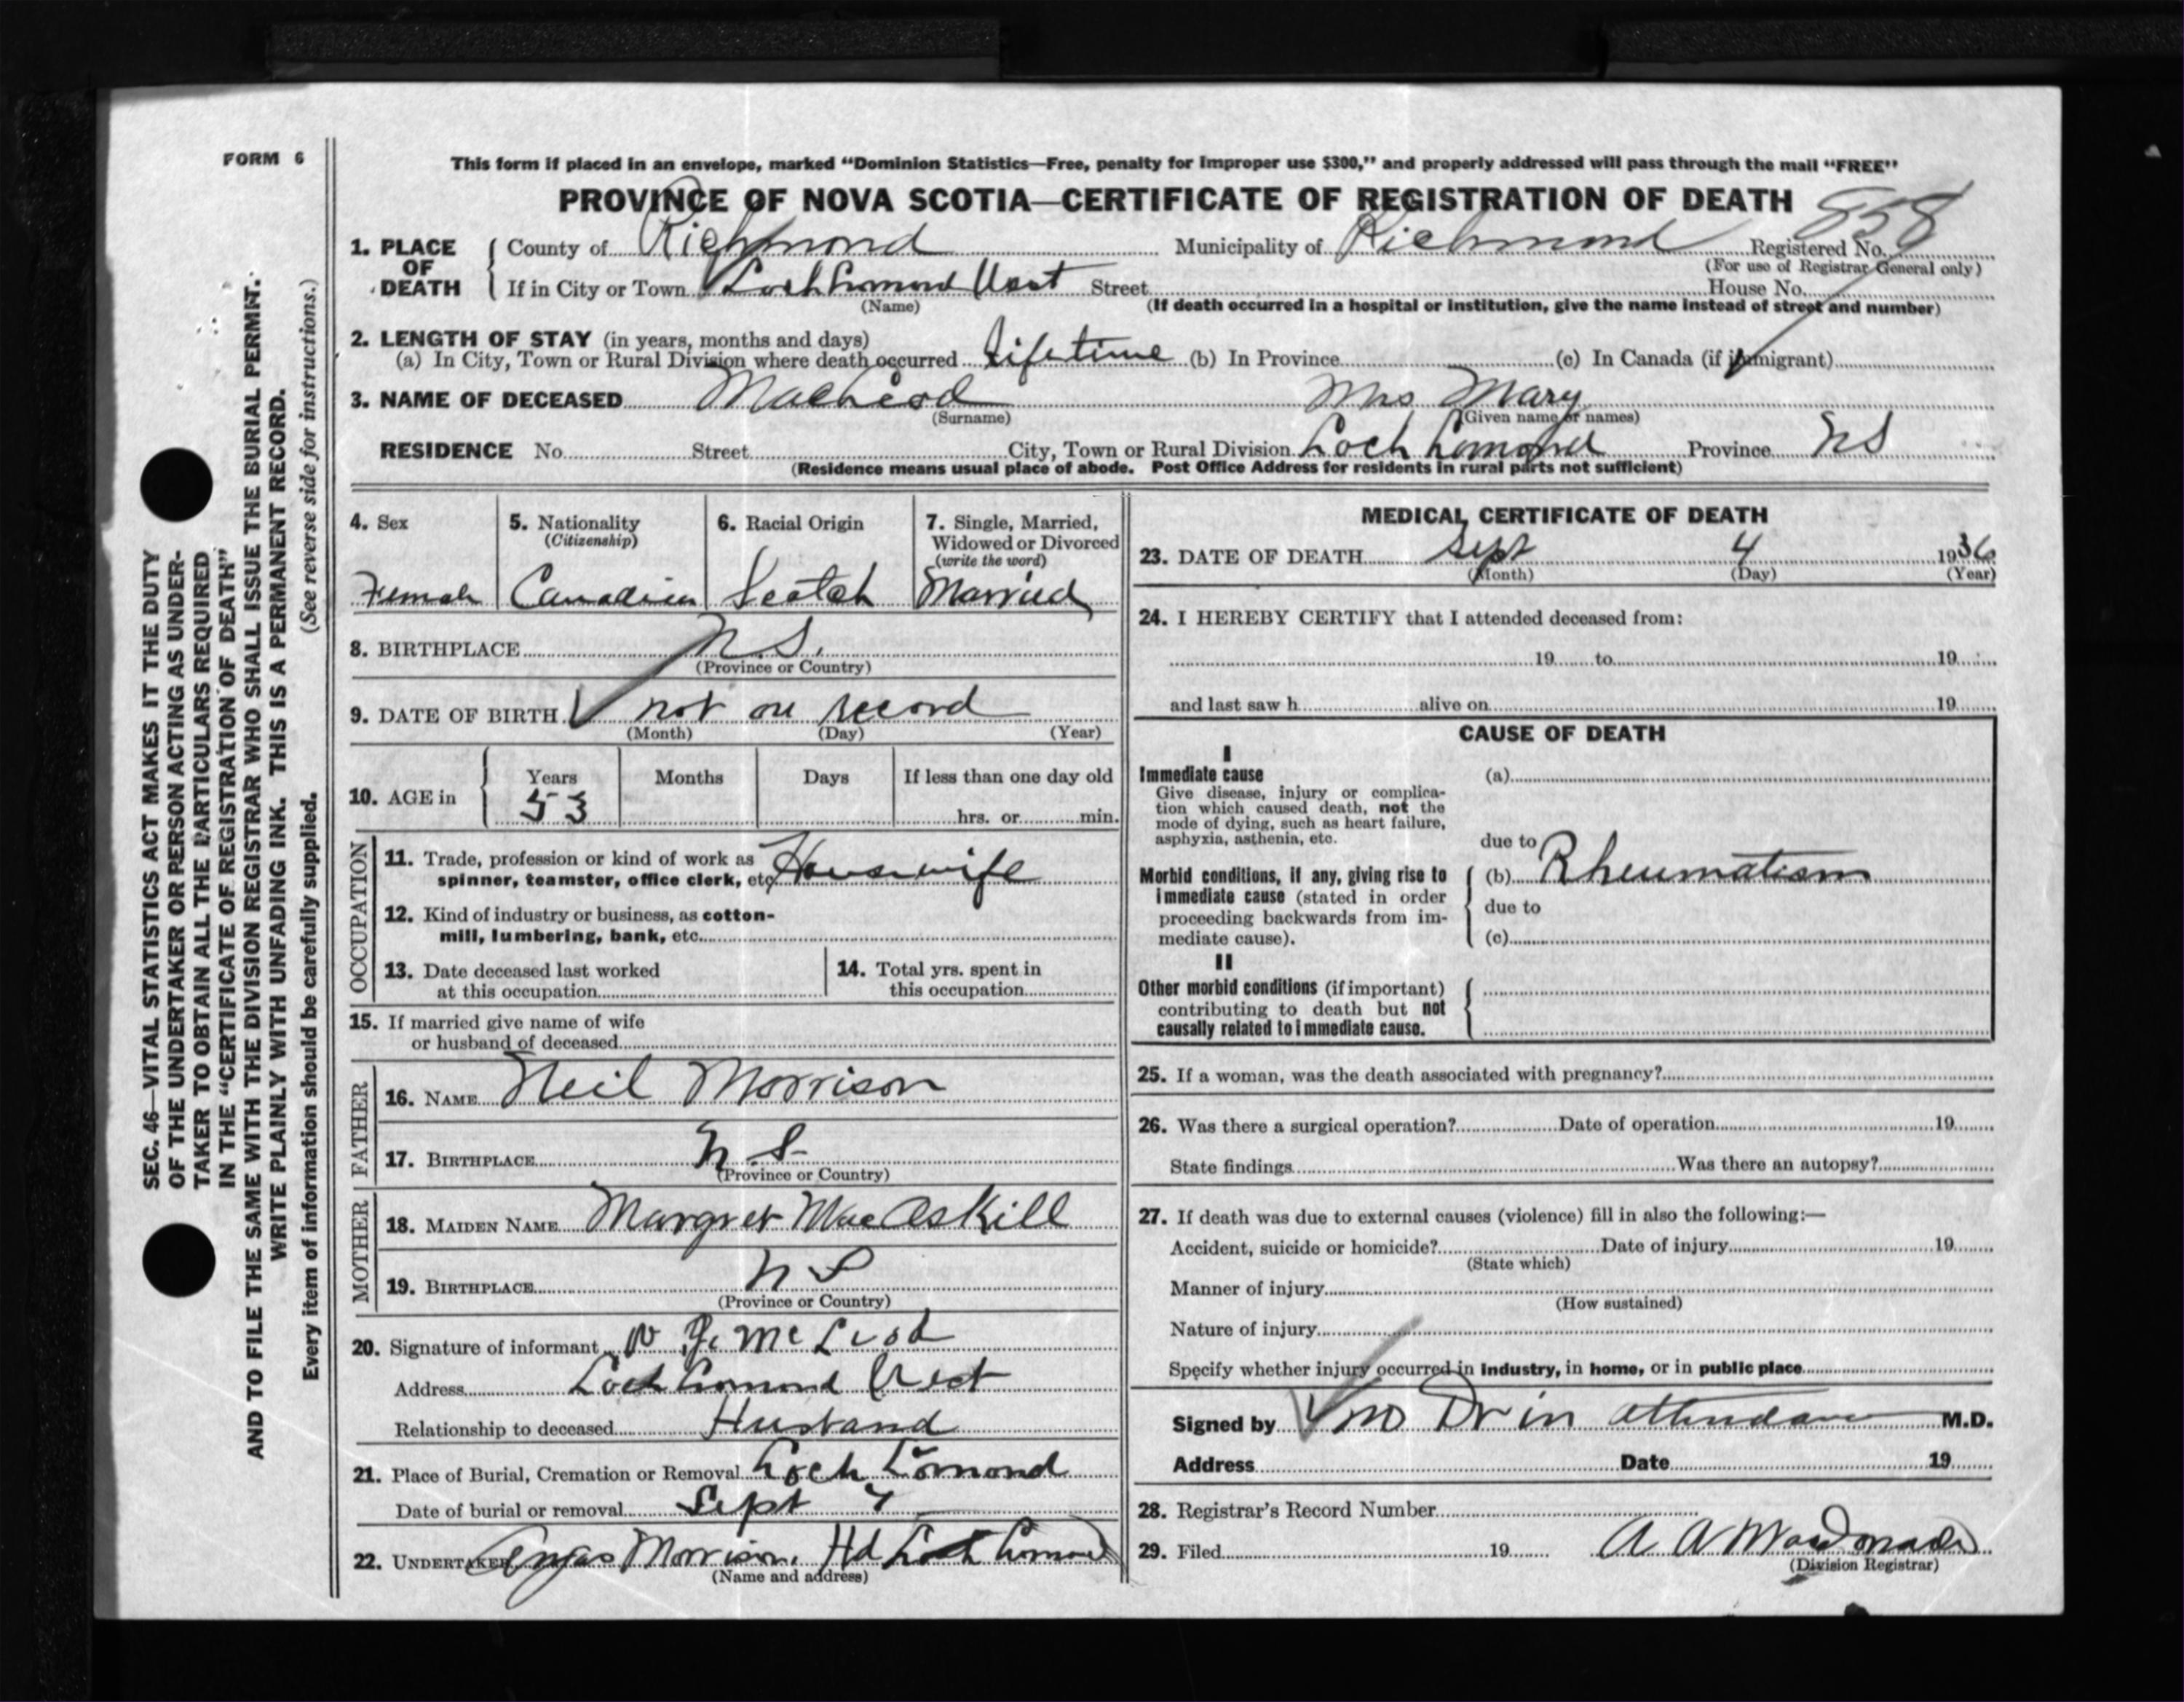 FORM 6
This form if placed in an envelope, marked “Dominion Statistics—Free, penalty for improper use $300,” and properly addressed will pass through the mail “FREE”
PROVINCE OF NOVA SCOTIA—CERTIFICATE OF REGISTRATION OF DEATH
858
1. PLACE OF DEATH { County of Richmond Municipality of Richmond Registered No.
(For use of Registrar General only)
If in City or Town Loch Lomond West Street House No.
(Name) (If death occurred in a hospital or institution, give the name instead of street and number)
2. LENGTH OF STAY (in years, months and days)
(a) In City, Town or Rural Division where death occurred Lifetime (b) In Province (c) In Canada (if immigrant)
3. NAME OF DECEASED MacLeod Mrs Mary
(Surname) (Given name or names)
RESIDENCE No. Street City, Town or Rural Division Loch Lomond Province NS
(Residence means usual place of abode. Post Office Address for residents in rural parts not sufficient)
4. Sex
Female
5. Nationality
(Citizenship)
Canadian
6. Racial Origin
Scotch
7. Single, Married,
Widowed or Divorced
(write the word)
Married
8. BIRTHPLACE N.S.
(Province or Country)
9. DATE OF BIRTH not on record
(Month) (Day) (Year)
10. AGE in { Years Months Days If less than one day old
53 hrs. or min.
OCCUPATION
11. Trade, profession or kind of work as
spinner, teamster, office clerk, etc Housewife
12. Kind of industry or business, as cotton-
mill, lumbering, bank, etc.
13. Date deceased last worked
at this occupation
14. Total yrs. spent in
this occupation
15. If married give name of wife
or husband of deceased
FATHER
16. NAME Neil Morrison
17. BIRTHPLACE N.S.
(Province or Country)
MOTHER
18. MAIDEN NAME Margret MacAskill
19. BIRTHPLACE N S
(Province or Country)
20. Signature of informant McLeod
Address Loch Lomond West
Relationship to deceased Husband
21. Place of Burial, Cremation or Removal Loch Lomond
Date of burial or removal Sept 7
22. UNDERTAKER Angus Morrison, Hd Loch Lomond
(Name and address)
MEDICAL CERTIFICATE OF DEATH
23. DATE OF DEATH Sept 4 1936
(Month) (Day) (Year)
24. I HEREBY CERTIFY that I attended deceased from:
19 to 19
and last saw h alive on 19
CAUSE OF DEATH
I
Immediate cause (a)
Give disease, injury or complica-
tion which caused death, not the
mode of dying, such as heart failure,
asphyxia, asthenia, etc.
due to
Morbid conditions, if any, giving rise to
immediate cause (stated in order
proceeding backwards from im-
mediate cause).
(b) Rheumatism
due to
(c)
II
Other morbid conditions (if important)
contributing to death but not
causally related to immediate cause.
25. If a woman, was the death associated with pregnancy?
26. Was there a surgical operation? Date of operation 19
State findings Was there an autopsy?
27. If death was due to external causes (violence) fill in also the following:—
Accident, suicide or homicide? Date of injury 19
(State which)
Manner of injury
(How sustained)
Nature of injury
Specify whether injury occurred in industry, in home, or in public place
Signed by no Dr in attendance M.D.
Address Date 19
28. Registrar's Record Number
29. Filed 19 A A MacDonald
(Division Registrar)
SEC. 46—VITAL STATISTICS ACT MAKES IT THE DUTY
OF THE UNDERTAKER OR PERSON ACTING AS UNDER-
TAKER TO OBTAIN ALL THE PARTICULARS REQUIRED
IN THE “CERTIFICATE OF REGISTRATION OF DEATH”
AND TO FILE THE SAME WITH THE DIVISION REGISTRAR WHO SHALL ISSUE THE BURIAL PERMIT.
WRITE PLAINLY WITH UNFADING INK. THIS IS A PERMANENT RECORD.
Every item of information should be carefully supplied. (See reverse side for instructions.)